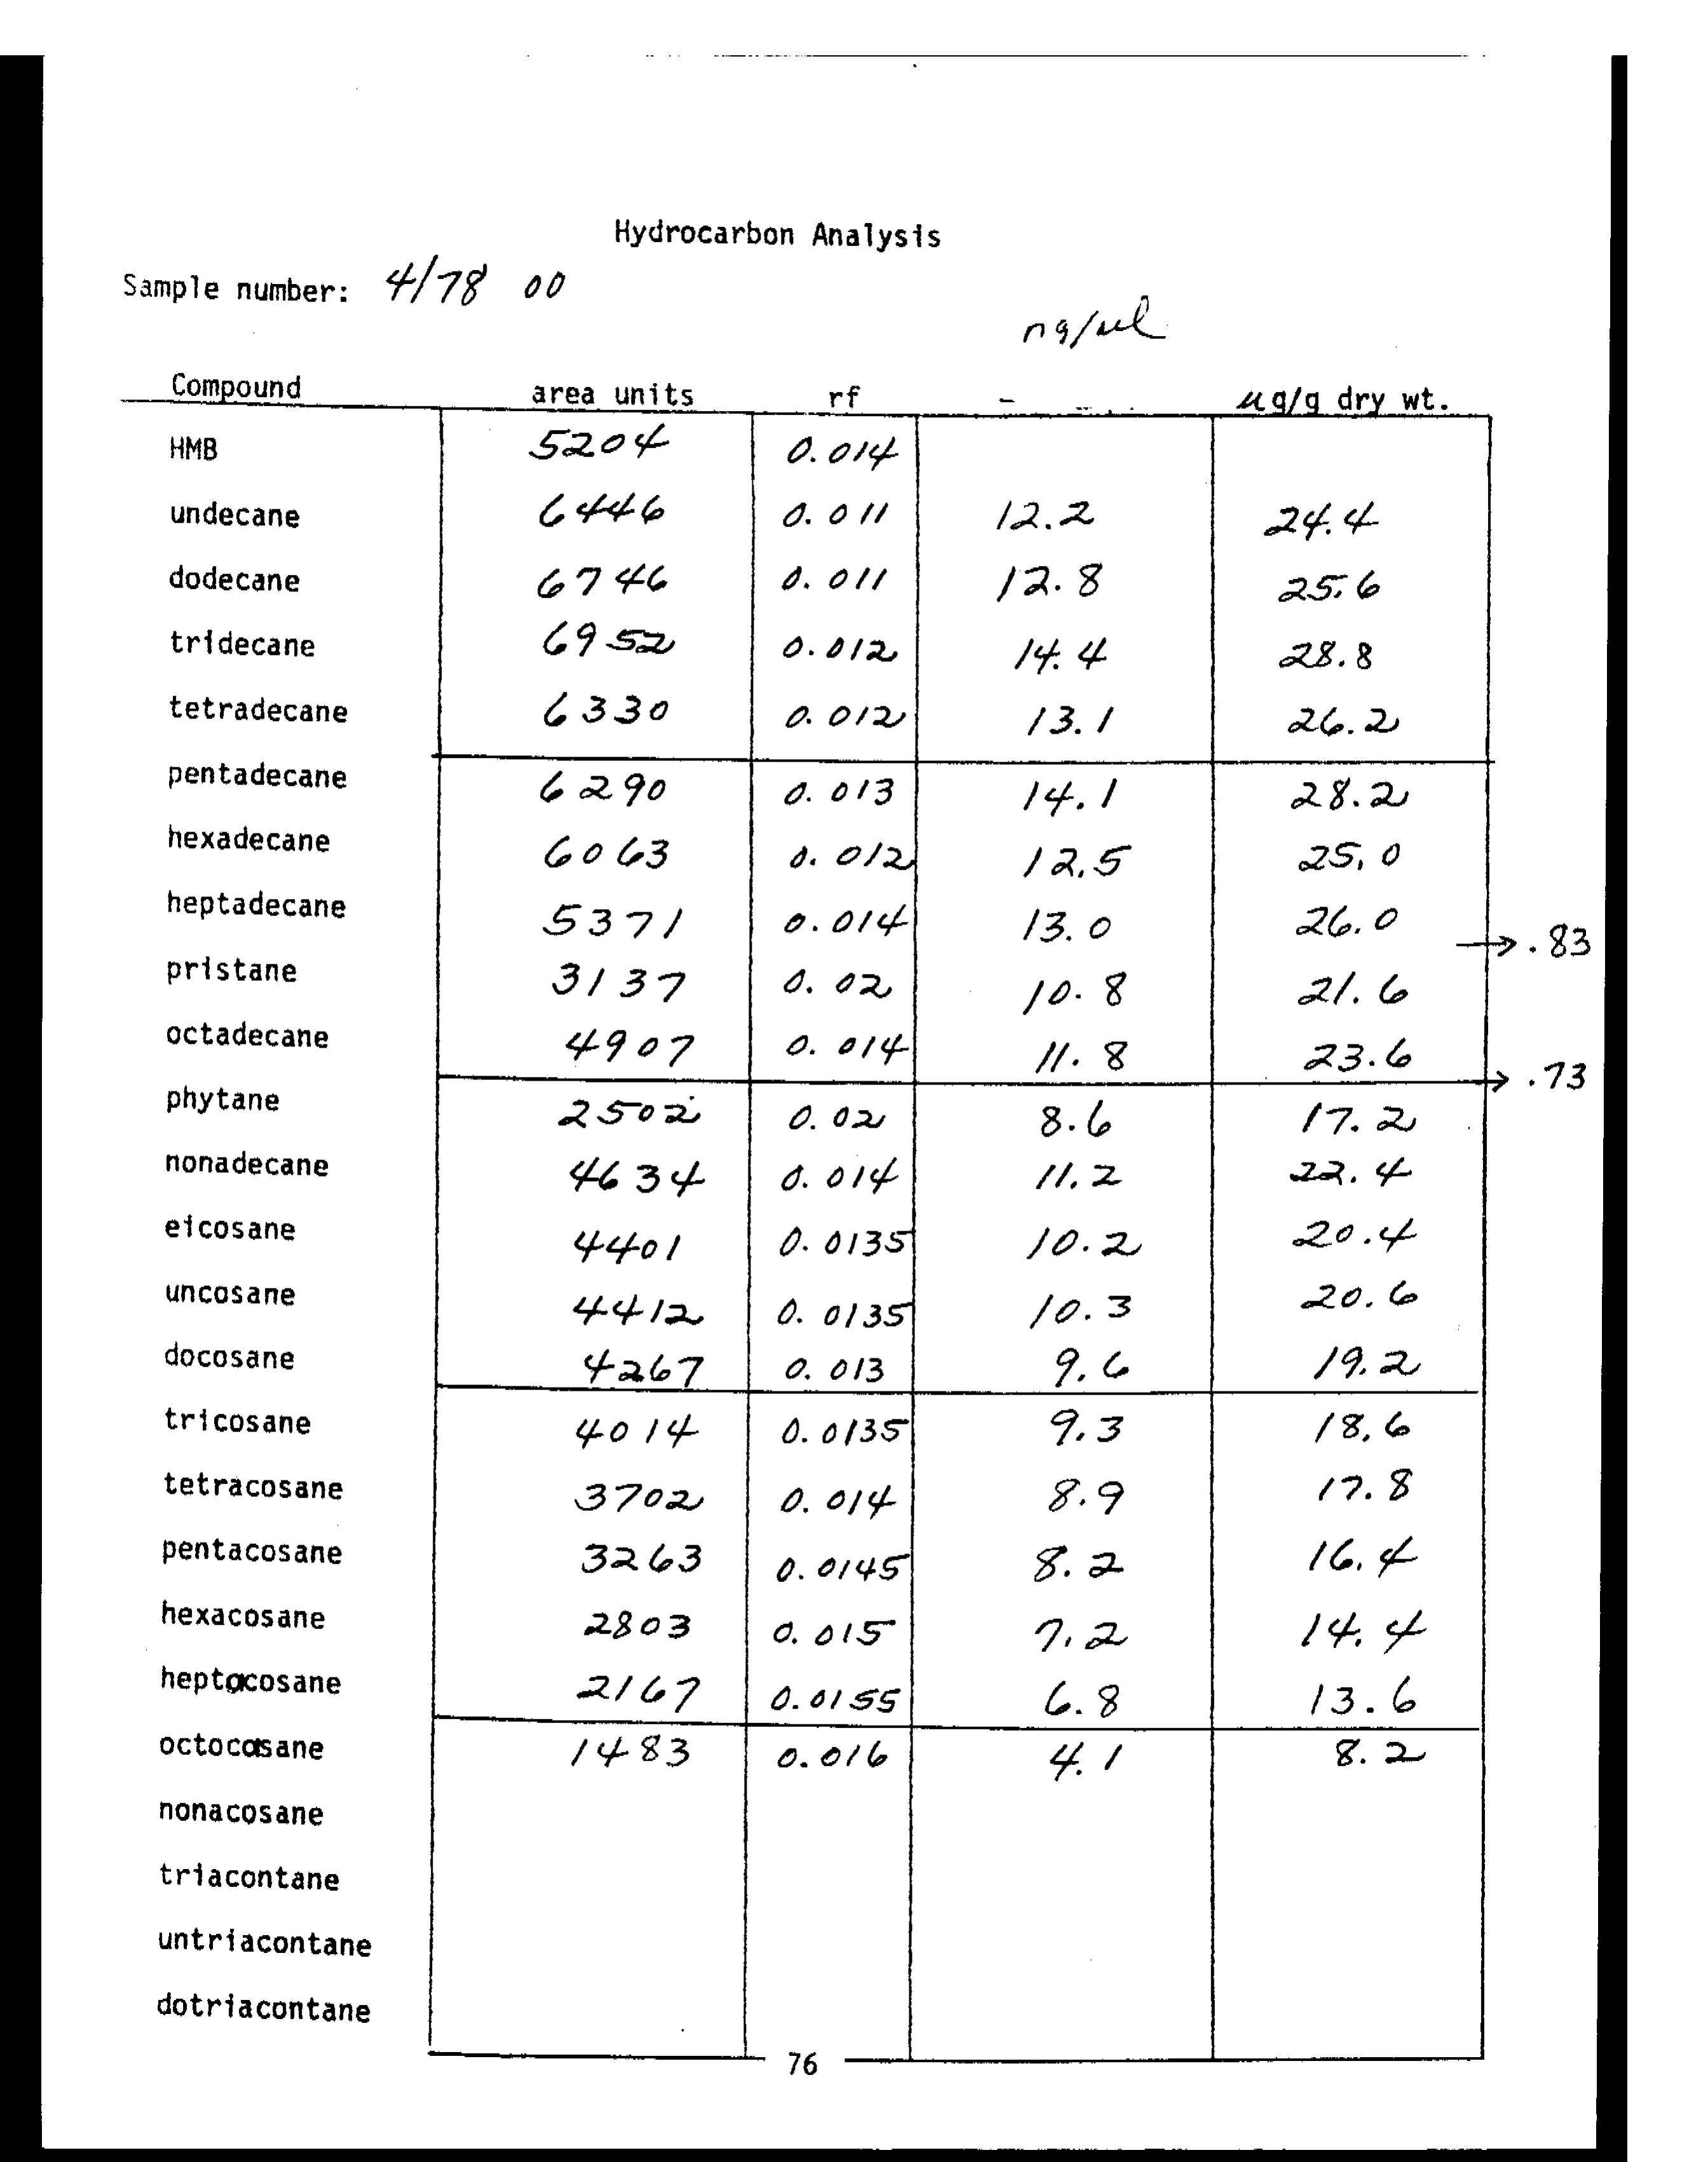 Hydrocarbon Analysis
Sample number: 4/78 00
ng/ul
Compound area units rf µg/g dry wt.
HMB 5204 0.014
undecane 6446 0.011 12.2 24.4
dodecane 6746 0.011 12.8 25.6
tridecane 6952 0.012 14.4 28.8
tetradecane 6330 0.012 13.1 26.2
pentadecane 6290 0.013 14.1 28.2
hexadecane 6063 0.012 12.5 25.0
heptadecane 5371 0.014 13.0 26.0
→ .83
pristane 3137 0.02 10.8 21.6
octadecane 4907 0.014 11.8 23.6
→ .73
phytane 2502 0.02 8.6 17.2
nonadecane 4634 0.014 11.2 22.4
eicosane 4401 0.0135 10.2 20.4
uncosane 4412 0.0135 10.3 20.6
docosane 4267 0.013 9.6 19.2
tricosane 4014 0.0135 9.3 18.6
tetracosane 3702 0.014 8.9 17.8
pentacosane 3263 0.0145 8.2 16.4
hexacosane 2803 0.015 7.2 14.4
heptacosane 2167 0.0155 6.8 13.6
octocosane 1483 0.016 4.1 8.2
nonacosane
triacontane
untriacontane
dotriacontane
76